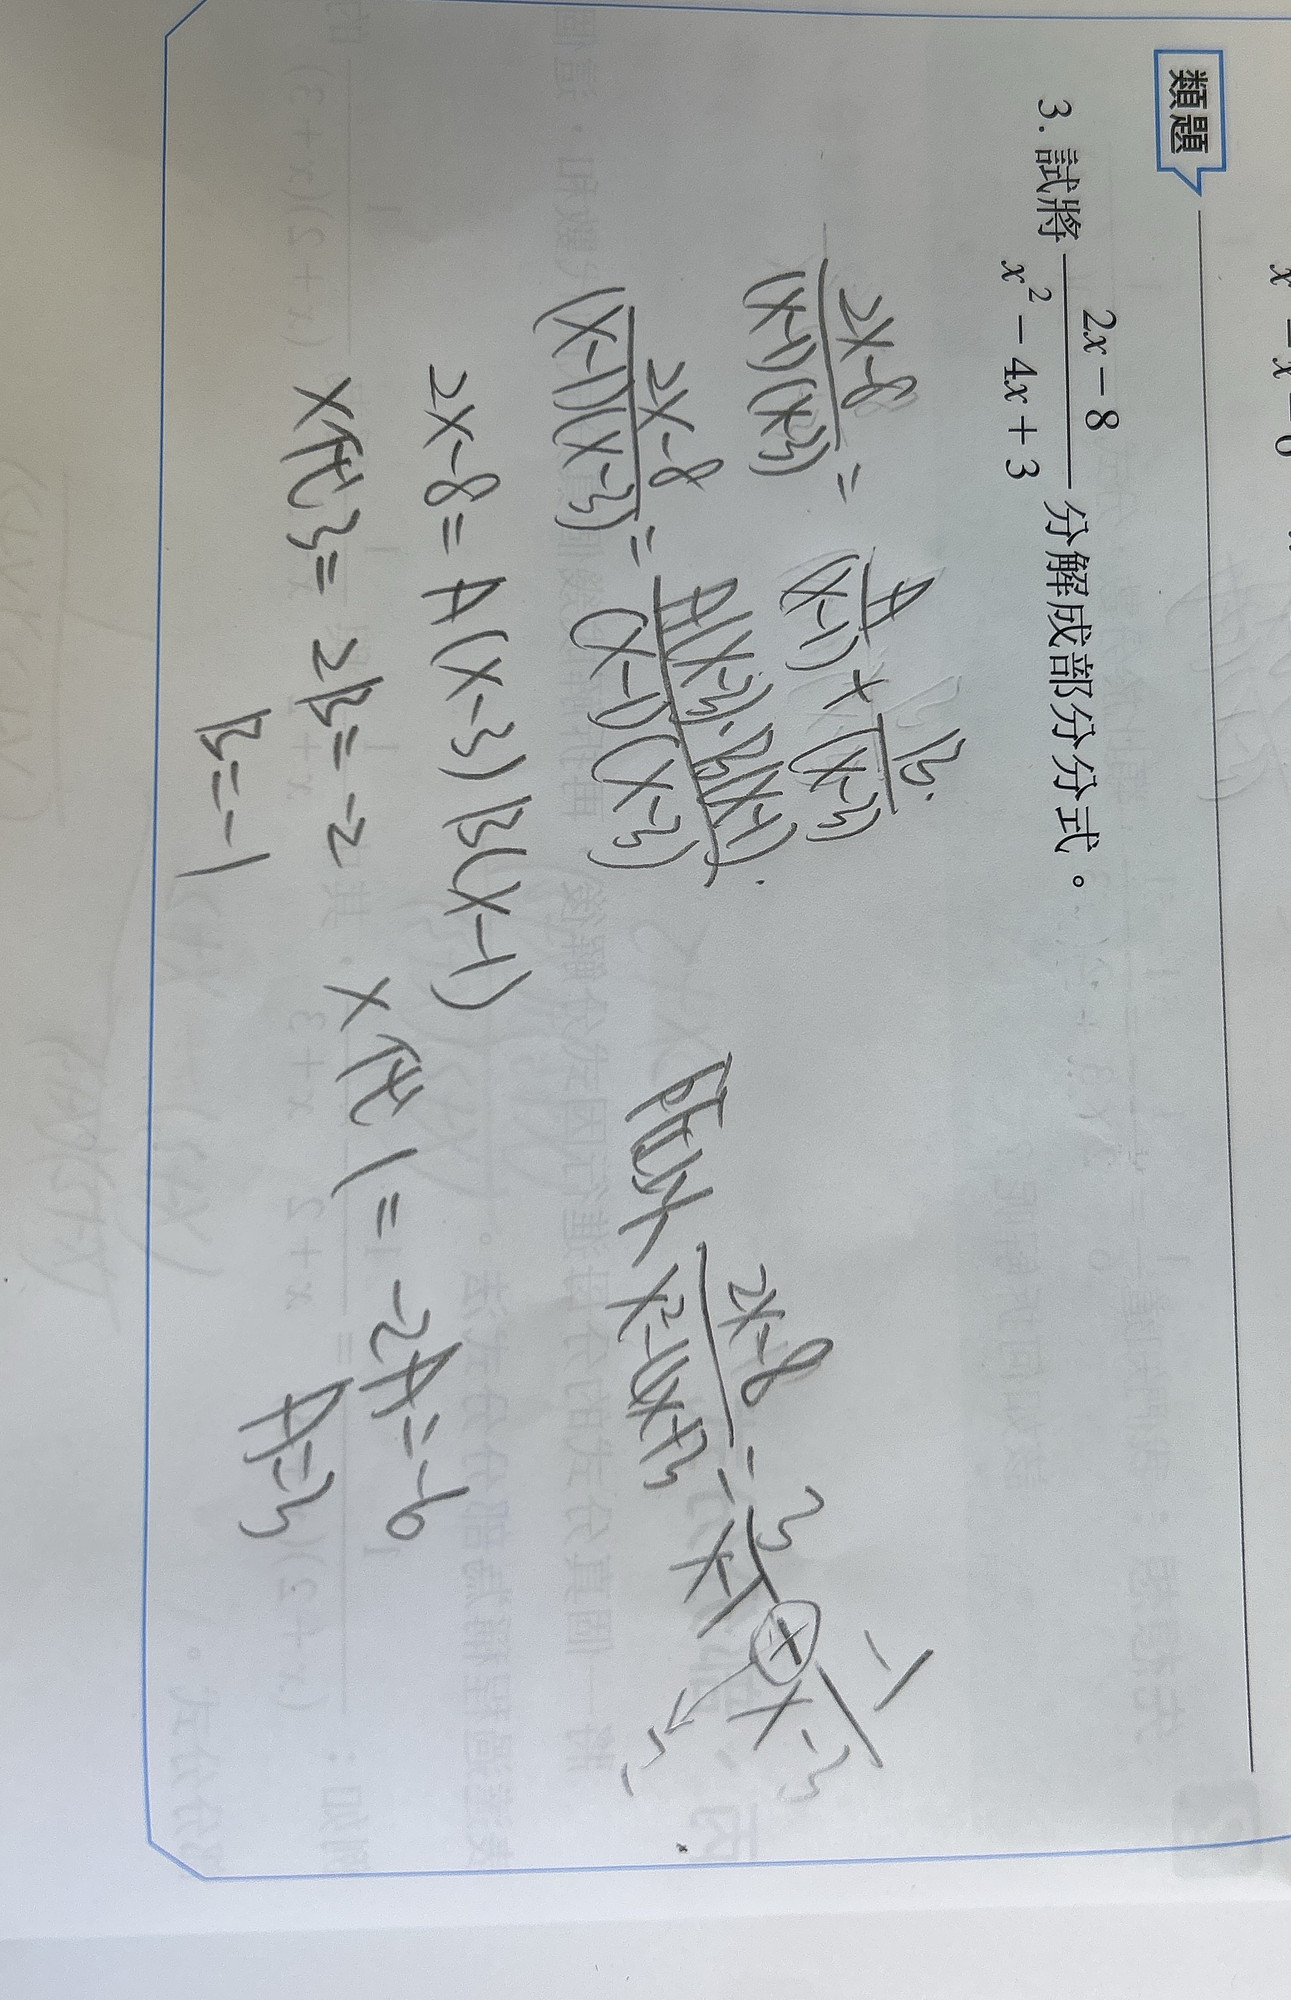 類題
3. 試將 (2x-8)/(x²-4x+3) 分解成部分分式。
(2x-8)/((x-1)(x-3)) = A/(x-1) + B/(x-3)
(2x-8)/((x-1)(x-3)) = (A(x-3)·B(x-1))/((x-1)(x-3))
2x-8=A(x-3)B(x-1)
x代3= 2B=-2
B=-1
x代1= -2A=-6
A=3
所以 (2x-8)/(x²-4x+3) = 3/(x-1) + -1/(x-3)